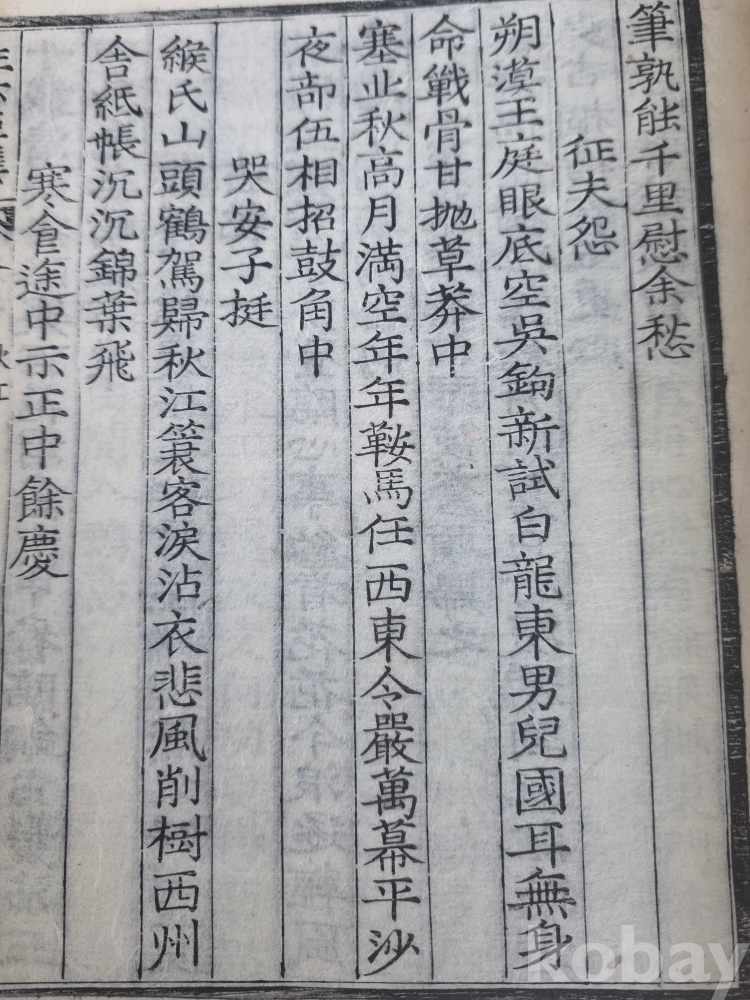 筆孰能千里慰余愁
征夫怨
朔漠王庭眼底空吳鉤新試白龍東男兒國耳無身
命戰骨甘抛草莽中
塞北秋高月滿空年年鞍馬任西東令嚴萬幕平沙
夜部伍相招鼓角中
哭安子挺
緱氏山頭鶴駕歸秋江蓑客淚沾衣悲風削樹西州
舍紙帳沉沉錦葉飛
寒食途中示正中餘慶
kobay